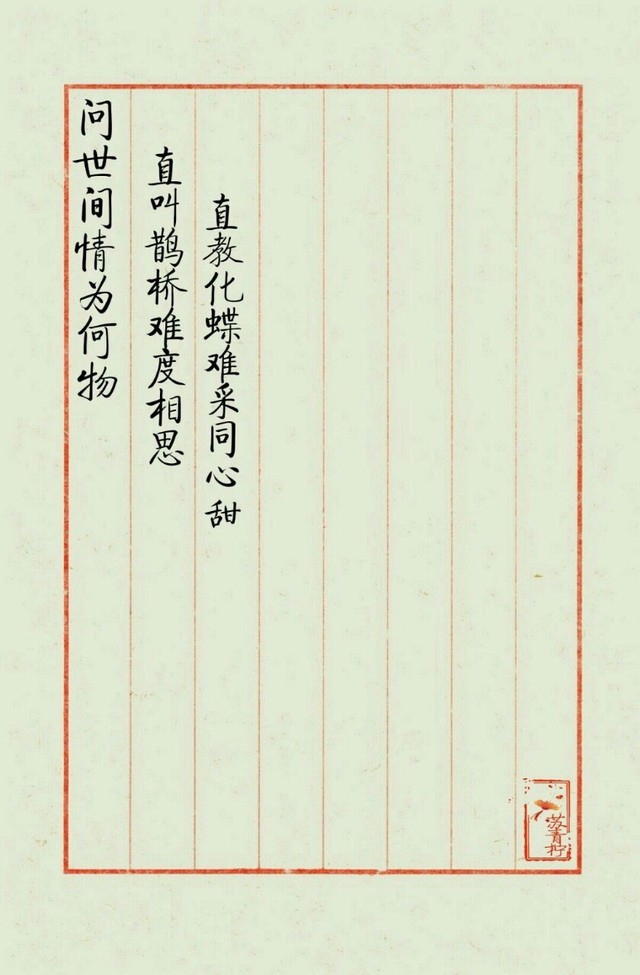 问世间情为何物
直叫鹊桥难度相思
直教化蝶难采同心甜
苏青柠